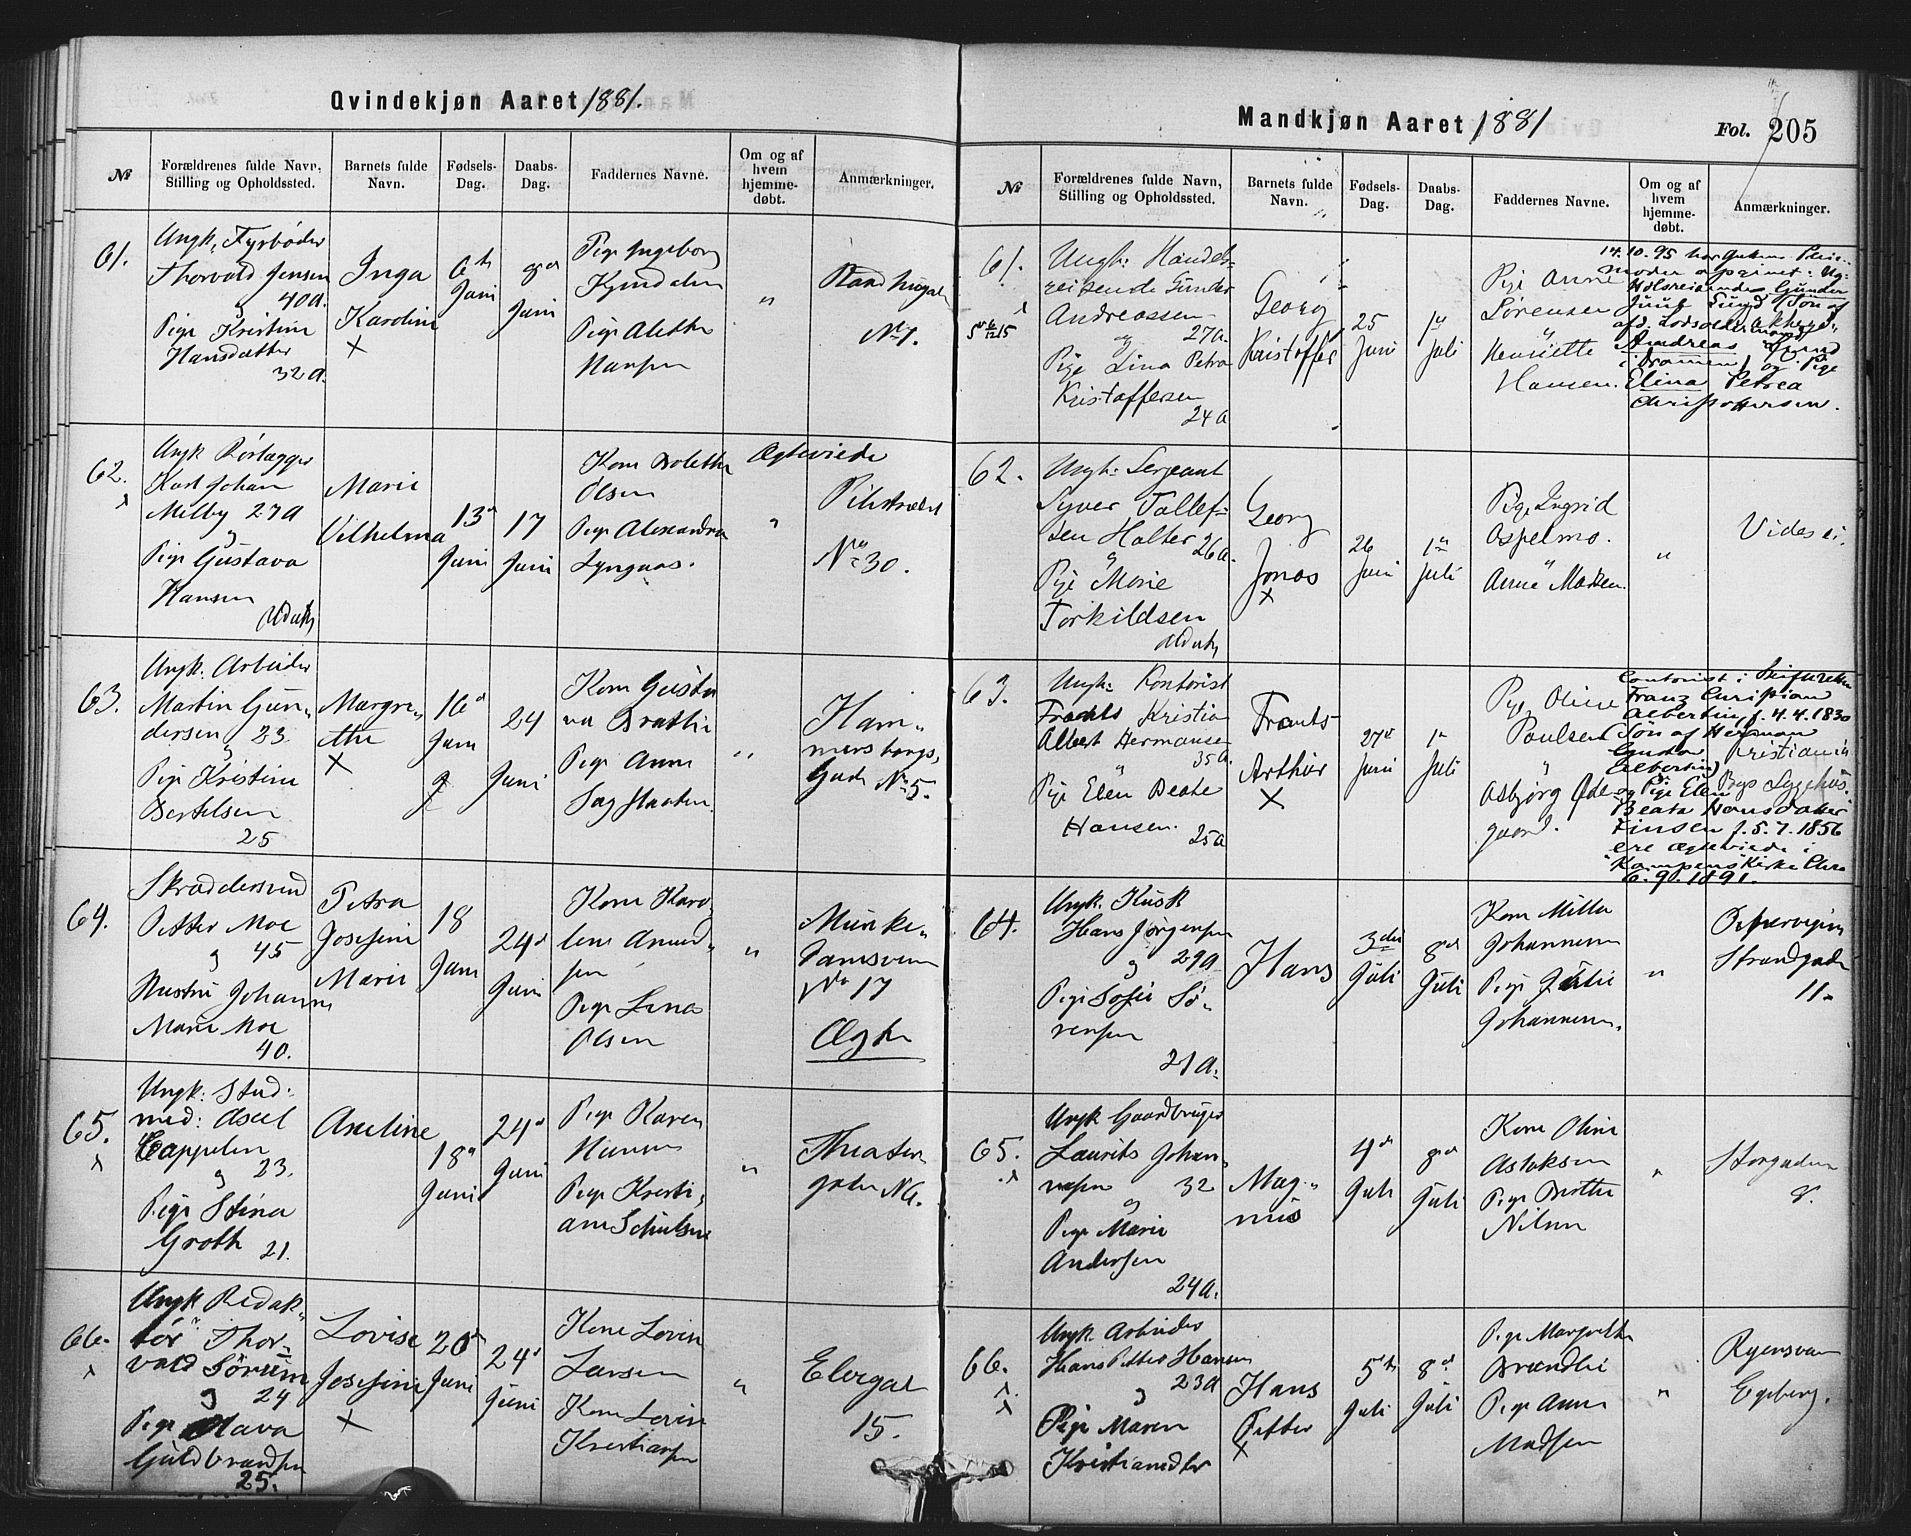 Qvindekjøn Aaret 1881.
№
Forældrenes fulde Navn,
Stilling og Opholdssted.
Barnets fulde
Navn.
Fødsels-
Dag.
Daabs-
Dag.
Faddernes Navne.
Om og af
hvem
hjemme-
døbt.
Anmærkninger.
61.
Ungk. Fyrbøder
Thorvald Jensen
40 a.
Pige Kristine
Hansdatter
32 a.
Inga
Karoline
×
6te
Juni
Juni
Pige Ingeborg
Pige Alethe
Hansen
"
No 7.
62.
Ungk Rørlægger
Karl Johan
Melby 27 a
og
Pige Gustava
Hansen
Marie
Vilhelma
13de
Juni
17
Juni
Kone Bolethe
Olsen
Pige Alexandra
Lyngaas.
"
Ægteviede
Pilestrædet
No 30.
63.
Ungk. Arbeider
Martin Gun-
dersen 23
og
Pige Kristine
Bertelsen
25
Margre-
the
×
16de
Juni
24
Juni
Kone Gusta
va Brathe
Pige Anne
"
Ham-
mersborgs
Gade No 5.
64.
Skræddersvend
Petter Moe
og 45
Hustru Johanne
Marie Moe
40.
Petra
Josefine
Marie
18
Juni
24de
Juni
Kone Karo-
line Amund-
sen
Pige Lina
Olsen
"
Munke-
damsveien
No 17
Ægte
65.
Ungk: Stud:
med: Axel
Cappelen
og 23.
Pige Stina
Groth 21.
Axeline
18de
Juni
24de
Juni
Pige Karen
Hansen
Pige Kristi-
ane Schulsen
"
Theater-
gaden
66.
Ungk Redak-
tør Thor-
vald Sørum
og 24
Pige Olava
Guldbrandsen
25.
Lovise
Josefine
×
20de
Juni
24de
Juni
Kone Lovise
Larsen
Kone Lovise
Kristiansen
"
Elvegat
15.
Mandkjøn Aaret 1881
Fol. 205
№
Forældrenes fulde Navn,
Stilling og Opholdssted.
Barnets fulde
Navn.
Fødsels-
Dag.
Daabs-
Dag.
Faddernes Navne.
Om og af
hvem
hjemme-
døbt.
Anmærkninger.
61.
Ungk: Handels-
reisende Gunder
Andreassen
og 27 a.
Pige Lina Petra
Kristoffersen
24 a
Georg
Kristoffer
25
Juni
1ste
Juli
Pige Anne
Sørensen
"
Henriette
Hansen.
14.10.95 har
Moder opgivet: Ug.
Hdlsreisende Gunder
Juul Sund Søn af
afd. Lodsoldermand
Andreas Sund
i Drammen og Pige
Elina Petrea
Christoffersen.
62.
Ungk: Sergeant
Syver Tollef-
sen Holter 26 a.
og
Pige Marie
Torkildsen
Georg
Jonas
×
26
Juni
1ste
Juli
Pige Ingrid
Ospelmo.
"
Anne Madsen.
"
Vides ei.
63.
Ungk: Kontorist
Frants Kristian
Albert Hermansen
" 35 a.
Pige Elen Beate
Hansen. 25 a
Frants
Arthur
×
27de
Juni
1ste
Juli
Pige Oline
Paulsen
"
Asbjørg Øde-
gaard.
Contorist i
Franz Christian
Albertin, f. 4.4.1830
Søn af Herman
Gustav
Albertin
og Pige Elen
Beata Hansdatter
Finsen f. 5.7.1856
ere Ægteviede i
Kampens Kirke Chra
6.9.1891.
Kristiania
Bys Sygehus.
64.
Ungk. Kusk
Hans Jørgensen
og 29 a
Pige Sofie Sø-
rensen
21 a.
Hans
3die
Juli
8de
Juli
Kone Milla
Johannesen
Pige Julie
Johannesen.
"
Strandgade
11.
65.
Ungk Gaardbruger
Laurits Johan-
nesen 32
og
Pige Marie
Andersen
24 a.
Mag-
nus
4de
Juli
8de
Juli
Kone Oline
Aslaksen
Pige Birthe
Nilsen
"
Storgaden
8.
66.
Ungk. Arbeider
Hans Petter Hansen
og 23 a
Pige Maren
Kristiansdtr
Hans
Petter
×
5te
Juli
8de
Juli
Pige Margrethe
Brændlie
Pige Anne
Madsen
"
Ryensveien
Egeberg.